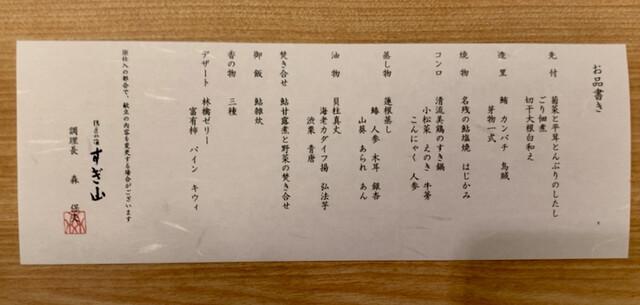 お品書き
先付　菊菜と平茸とんぶりのしたし
ごり佃煮
切干大根白和え
造里　鮪　カンパチ　烏賊
芽物一式
焼物　名残の鮎塩焼　はじかみ
コンロ　清流美鶏のすき鍋
小松菜　えのき　牛蒡
こんにゃく　人参
蒸し物　蓮根蒸し
鰆　人参　木耳　銀杏
山葵　あられ　あん
油物　貝柱真丈
海老カダイフ揚　弘法芋
渋栗　青唐
焚き合せ　鮎甘露煮と野菜の焚き合せ
御飯　鮎雑炊
香の物　三種
デザート　林檎ゼリー
富有柿　パイン　キウィ
※仕入の都合で、献立の内容を変更する場合がございます
すぎ山
調理長　森